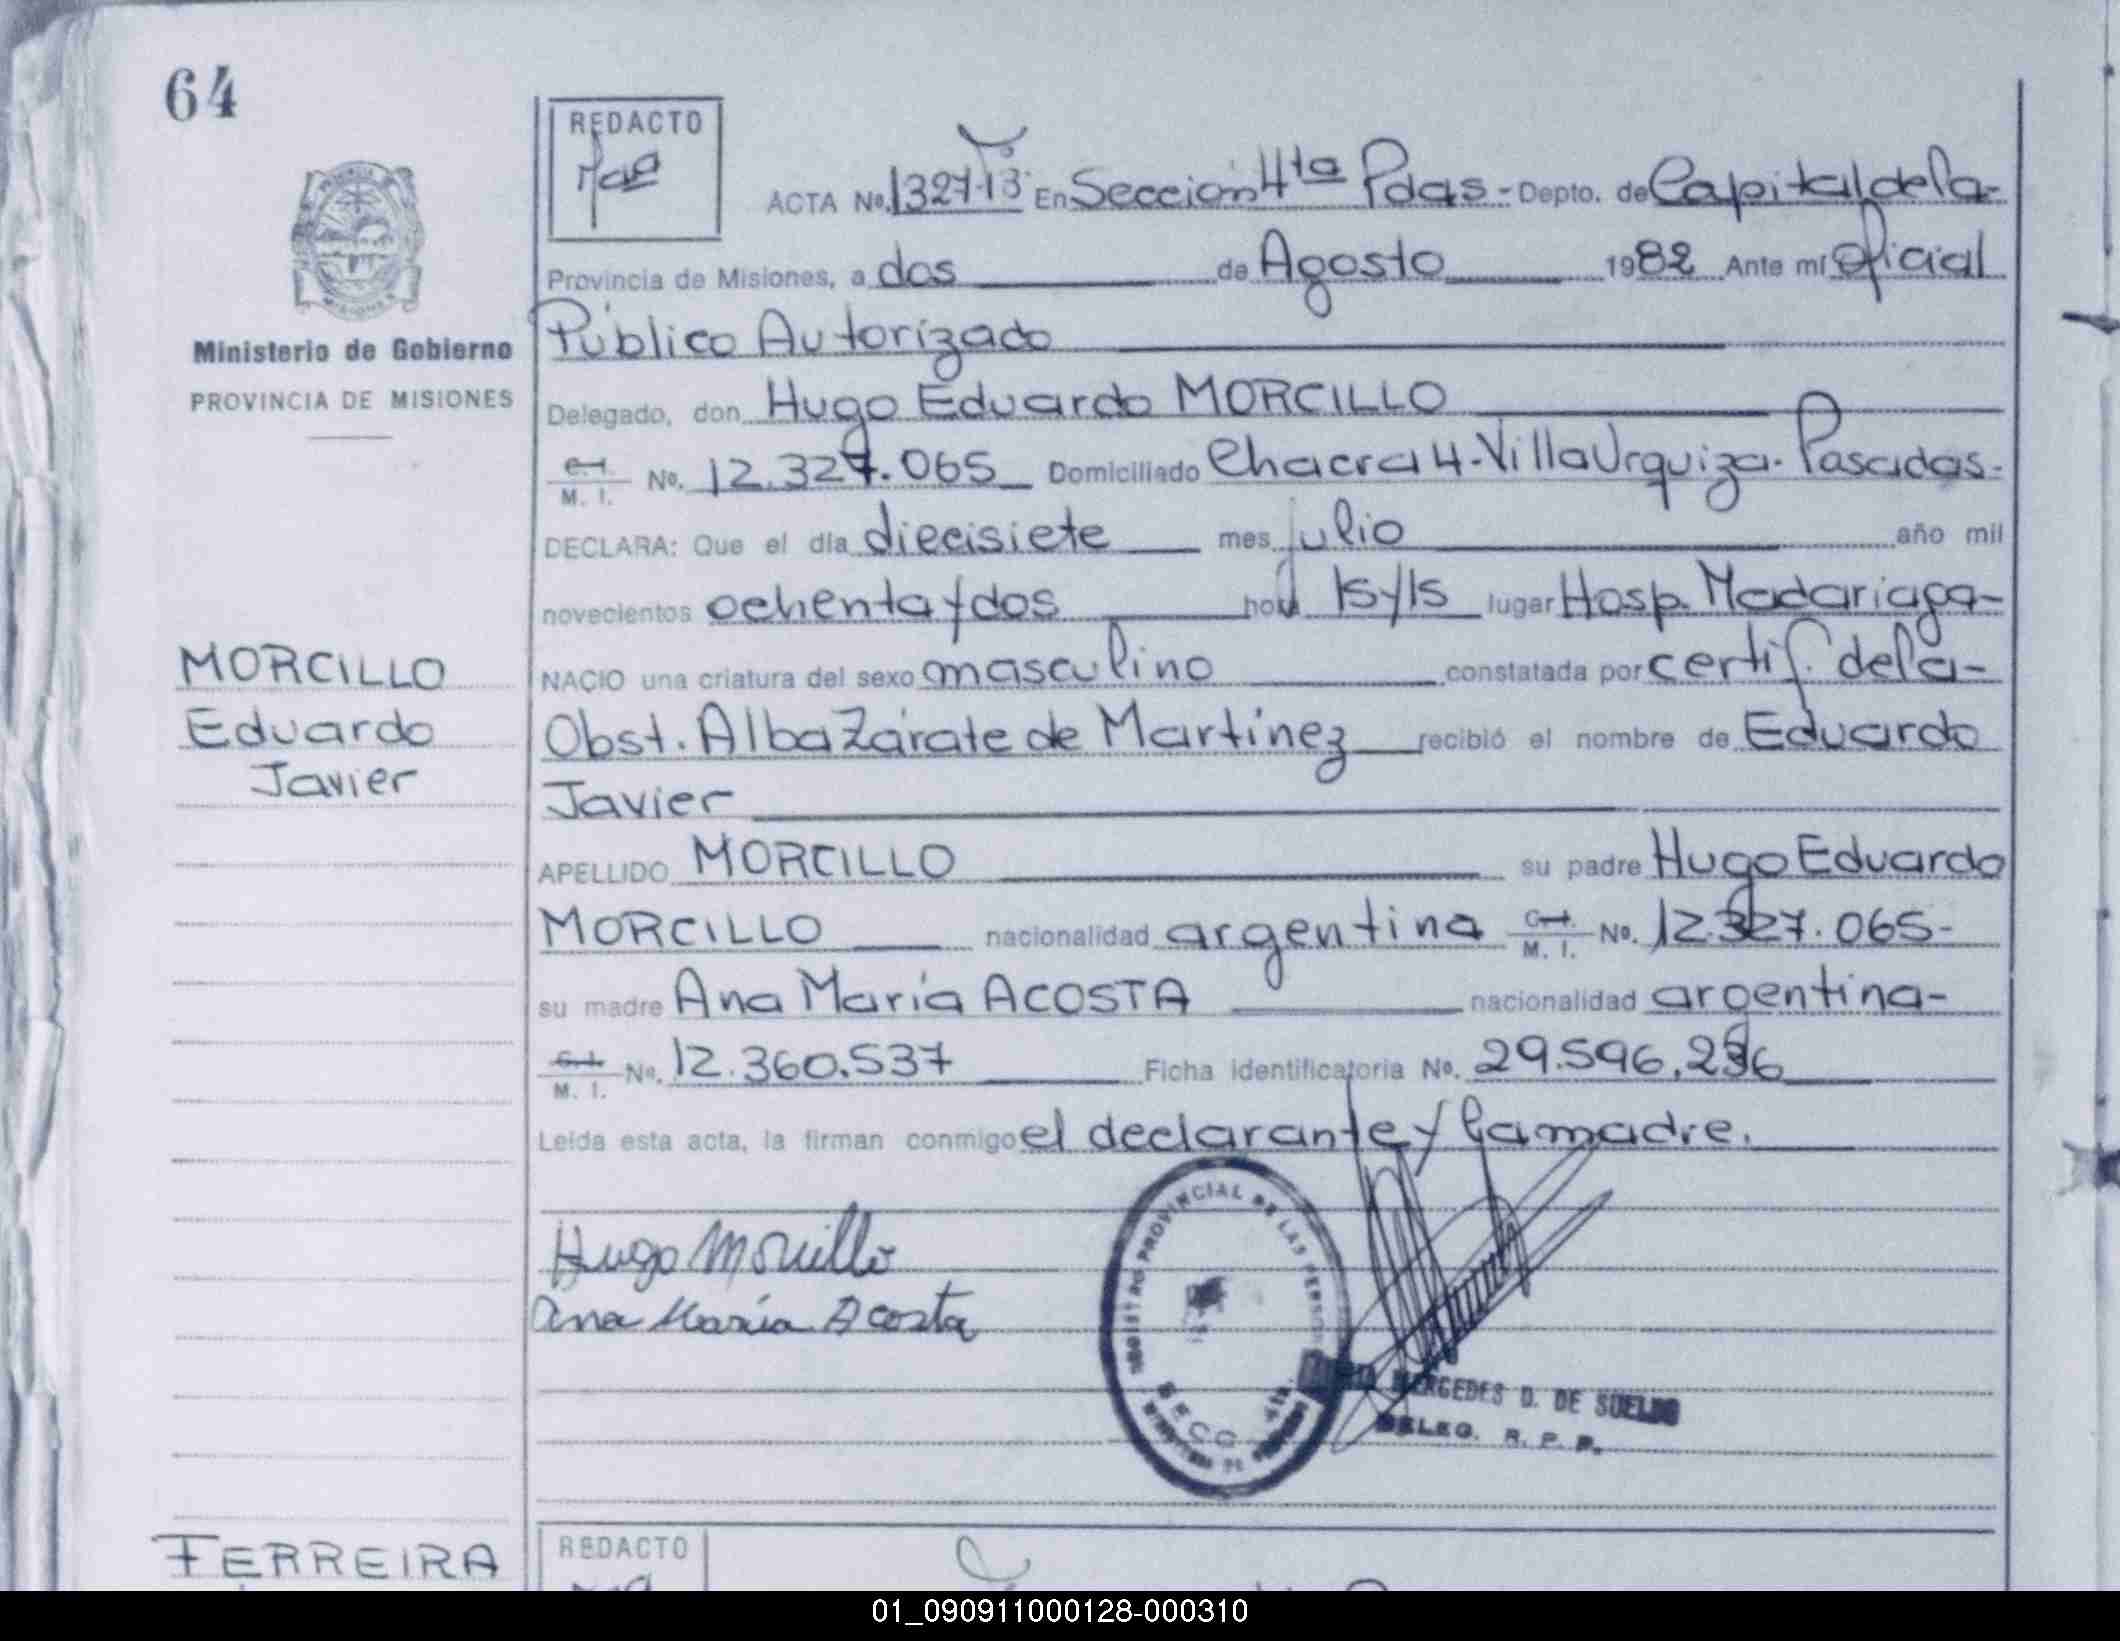 64
REDACTO
ACTA No. 1327-13 En Sección 4ta Pdas.- Depto. de Capital de la-
Provincia de Misiones, a dos de Agosto 1982 Ante mí Oficial
Público Autorizado
Ministerio de Gobierno
PROVINCIA DE MISIONES
Delegado, don Hugo Eduardo MORCILLO
C.I. M. I. No. 12.327.065 Domiciliado Chacra 4-Villa Urquiza. Posadas-
DECLARA: Que el día diecisiete mes julio año mil
novecientos ochenta y dos hora 15 y 15 lugar Hosp. Madariaga-
MORCILLO
Eduardo
Javier
NACIO una criatura del sexo masculino constatada por certif. de la-
Obst. Alba Zárate de Martínez recibió el nombre de Eduardo
Javier
APELLIDO MORCILLO su padre Hugo Eduardo
MORCILLO nacionalidad argentina C.I. M. I. No. 12.327.065-
su madre Ana María ACOSTA nacionalidad argentina-
C.I. M. I. No. 12.360.537 Ficha identificatoria No. 29.596.236
Leída esta acta, la firman conmigo el declarante y la madre.
Hugo Morcillo
Ana María Acosta
REGISTRO PROVINCIAL DE LAS PERSONAS
SECC. 4ta.
MERCEDES D. DE SUELDO
DELEG. R. P. P.
FERREIRA
REDACTO
01_090911000128-000310